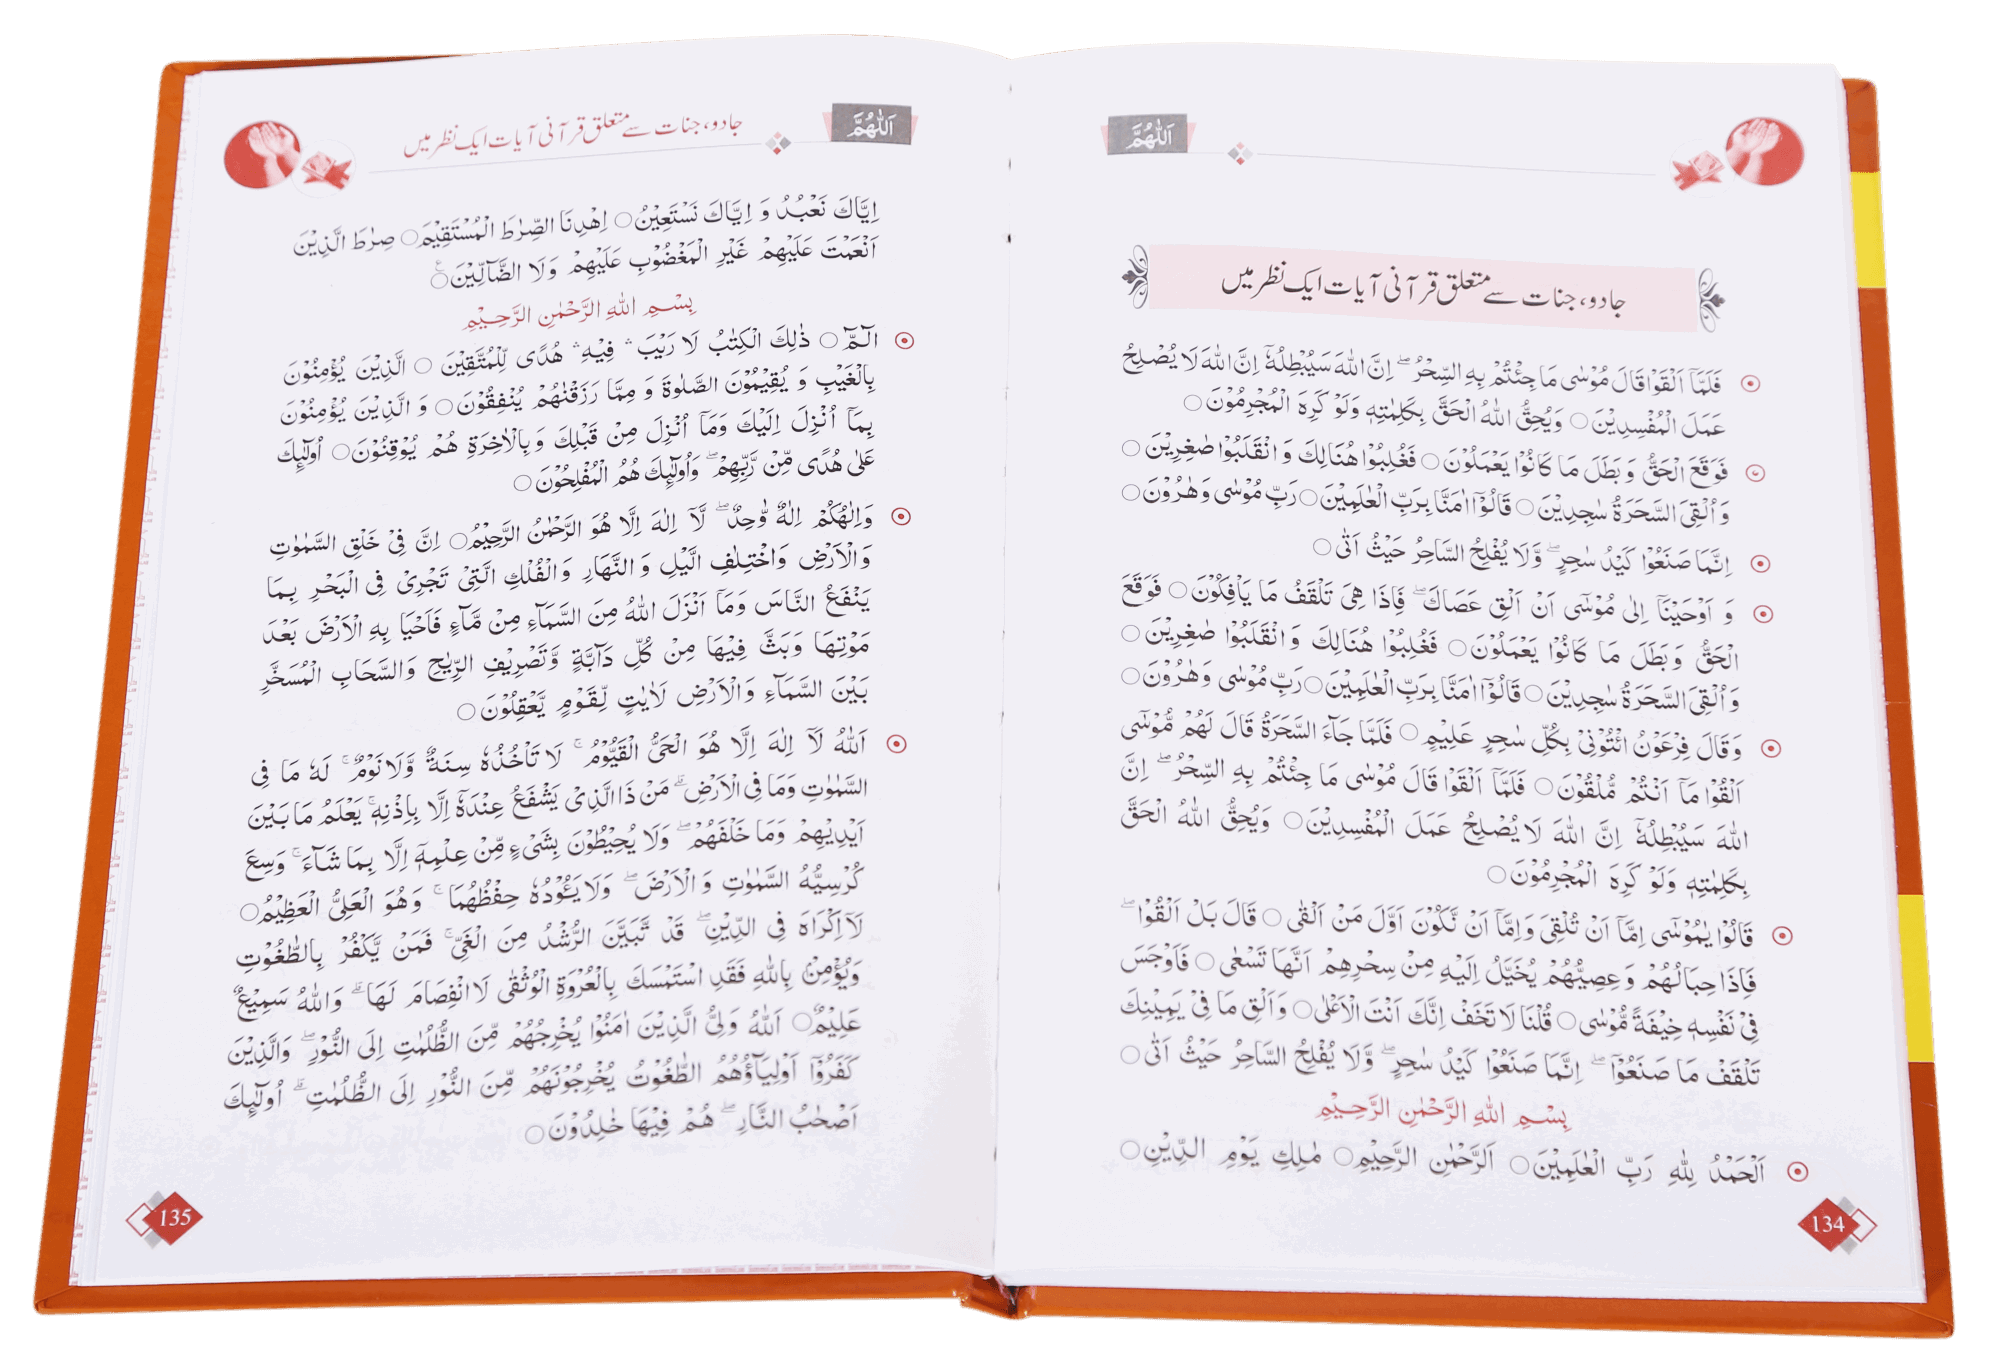 اَللّٰهُمَّ
جادو، جنات سے متعلق قرآنی آیات ایک نظر میں
فَلَمَّآ اَلْقَوْا قَالَ مُوْسٰى مَا جِئْتُمْ بِهِ السِّحْرُ ۖ اِنَّ اللّٰهَ سَيُبْطِلُهٗٓ اِنَّ اللّٰهَ لَا يُصْلِحُ
عَمَلَ الْمُفْسِدِيْنَ○ وَيُحِقُّ اللّٰهُ الْحَقَّ بِكَلِمٰتِهٖ وَلَوْ كَرِهَ الْمُجْرِمُوْنَ○
فَوَقَعَ الْحَقُّ وَ بَطَلَ مَا كَانُوْا يَعْمَلُوْنَ○ فَغُلِبُوْا هُنَالِكَ وَ انْقَلَبُوْا صٰغِرِيْنَ○
وَ اُلْقِىَ السَّحَرَةُ سٰجِدِيْنَ○ قَالُوْٓا اٰمَنَّا بِرَبِّ الْعٰلَمِيْنَ○ رَبِّ مُوْسٰى وَ هٰرُوْنَ○
اِنَّمَا صَنَعُوْا كَيْدُ سٰحِرٍ ۖ وَّلَا يُفْلِحُ السَّاحِرُ حَيْثُ اَتٰى○
وَ اَوْحَيْنَآ اِلٰى مُوْسٰٓى اَنْ اَلْقِ عَصَاكَ ۖ فَاِذَا هِىَ تَلْقَفُ مَا يَاْفِكُوْنَ○ فَوَقَعَ
الْحَقُّ وَ بَطَلَ مَا كَانُوْا يَعْمَلُوْنَ○ فَغُلِبُوْا هُنَالِكَ وَ انْقَلَبُوْا صٰغِرِيْنَ○
وَ اُلْقِىَ السَّحَرَةُ سٰجِدِيْنَ○ قَالُوْٓا اٰمَنَّا بِرَبِّ الْعٰلَمِيْنَ○ رَبِّ مُوْسٰى وَ هٰرُوْنَ○
وَقَالَ فِرْعَوْنُ ائْتُوْنِىْ بِكُلِّ سٰحِرٍ عَلِيْمٍ○ فَلَمَّا جَآءَ السَّحَرَةُ قَالَ لَهُمْ مُّوْسٰٓى
اَلْقُوْا مَآ اَنْتُمْ مُّلْقُوْنَ○ فَلَمَّآ اَلْقَوْا قَالَ مُوْسٰى مَا جِئْتُمْ بِهِ السِّحْرُ ۖ اِنَّ
اللّٰهَ سَيُبْطِلُهٗٓ اِنَّ اللّٰهَ لَا يُصْلِحُ عَمَلَ الْمُفْسِدِيْنَ○ وَيُحِقُّ اللّٰهُ الْحَقَّ
بِكَلِمٰتِهٖ وَلَوْ كَرِهَ الْمُجْرِمُوْنَ○
قَالُوْا يٰمُوْسٰٓى اِمَّآ اَنْ تُلْقِىَ وَاِمَّآ اَنْ نَّكُوْنَ اَوَّلَ مَنْ اَلْقٰى○ قَالَ بَلْ اَلْقُوْا ۖ
فَاِذَا حِبَالُهُمْ وَ عِصِيُّهُمْ يُخَيَّلُ اِلَيْهِ مِنْ سِحْرِهِمْ اَنَّهَا تَسْعٰى○ فَاَوْجَسَ
فِىْ نَفْسِهٖ خِيْفَةً مُّوْسٰى○ قُلْنَا لَا تَخَفْ اِنَّكَ اَنْتَ الْاَعْلٰى○ وَاَلْقِ مَا فِىْ يَمِيْنِكَ
تَلْقَفْ مَا صَنَعُوْا ۖ اِنَّمَا صَنَعُوْا كَيْدُ سٰحِرٍ ۖ وَّلَا يُفْلِحُ السَّاحِرُ حَيْثُ اَتٰى○
بِسْمِ اللّٰهِ الرَّحْمٰنِ الرَّحِيْمِ
اَلْحَمْدُ لِلّٰهِ رَبِّ الْعٰلَمِيْنَ○ اَلرَّحْمٰنِ الرَّحِيْمِ○ مٰلِكِ يَوْمِ الدِّيْنِ○
134
اَللّٰهُمَّ
جادو، جنات سے متعلق قرآنی آیات ایک نظر میں
اِيَّاكَ نَعْبُدُ وَ اِيَّاكَ نَسْتَعِيْنُ○ اِهْدِنَا الصِّرٰطَ الْمُسْتَقِيْمَ○ صِرٰطَ الَّذِيْنَ
اَنْعَمْتَ عَلَيْهِمْ غَيْرِ الْمَغْضُوْبِ عَلَيْهِمْ وَلَا الضَّآلِّيْنَ○ۧ
بِسْمِ اللّٰهِ الرَّحْمٰنِ الرَّحِيْمِ
الٓمّٓ○ ذٰلِكَ الْكِتٰبُ لَا رَيْبَ ۛ فِيْهِ ۛ هُدًى لِّلْمُتَّقِيْنَ○ الَّذِيْنَ يُؤْمِنُوْنَ
بِالْغَيْبِ وَ يُقِيْمُوْنَ الصَّلٰوةَ وَ مِمَّا رَزَقْنٰهُمْ يُنْفِقُوْنَ○ وَ الَّذِيْنَ يُؤْمِنُوْنَ
بِمَآ اُنْزِلَ اِلَيْكَ وَمَآ اُنْزِلَ مِنْ قَبْلِكَ وَ بِالْاٰخِرَةِ هُمْ يُوْقِنُوْنَ○ اُولٰٓئِكَ
عَلٰى هُدًى مِّنْ رَّبِّهِمْ ۖ وَاُولٰٓئِكَ هُمُ الْمُفْلِحُوْنَ○
وَاِلٰهُكُمْ اِلٰهٌ وَّاحِدٌ ۖ لَآ اِلٰهَ اِلَّا هُوَ الرَّحْمٰنُ الرَّحِيْمُ○ اِنَّ فِىْ خَلْقِ السَّمٰوٰتِ
وَالْاَرْضِ وَاخْتِلٰفِ الَّيْلِ وَ النَّهَارِ وَالْفُلْكِ الَّتِىْ تَجْرِىْ فِى الْبَحْرِ بِمَا
يَنْفَعُ النَّاسَ وَمَآ اَنْزَلَ اللّٰهُ مِنَ السَّمَآءِ مِنْ مَّآءٍ فَاَحْيَا بِهِ الْاَرْضَ بَعْدَ
مَوْتِهَا وَبَثَّ فِيْهَا مِنْ كُلِّ دَآبَّةٍ وَّتَصْرِيْفِ الرِّيٰحِ وَالسَّحَابِ الْمُسَخَّرِ
بَيْنَ السَّمَآءِ وَالْاَرْضِ لَاٰيٰتٍ لِّقَوْمٍ يَّعْقِلُوْنَ○
اَللّٰهُ لَآ اِلٰهَ اِلَّا هُوَ الْحَىُّ الْقَيُّوْمُ ۚ لَا تَاْخُذُهٗ سِنَةٌ وَّلَا نَوْمٌ ۚ لَهٗ مَا فِى
السَّمٰوٰتِ وَمَا فِى الْاَرْضِ ۗ مَنْ ذَا الَّذِىْ يَشْفَعُ عِنْدَهٗٓ اِلَّا بِاِذْنِهٖ ۚ يَعْلَمُ مَا بَيْنَ
اَيْدِيْهِمْ وَمَا خَلْفَهُمْ ۖ وَلَا يُحِيْطُوْنَ بِشَىْءٍ مِّنْ عِلْمِهٖٓ اِلَّا بِمَا شَآءَ ۚ وَسِعَ
كُرْسِيُّهُ السَّمٰوٰتِ وَ الْاَرْضَ ۖ وَلَا يَـُٔوْدُهٗ حِفْظُهُمَا ۚ وَهُوَ الْعَلِىُّ الْعَظِيْمُ○
لَآ اِكْرَاهَ فِى الدِّيْنِ ۖ قَدْ تَّبَيَّنَ الرُّشْدُ مِنَ الْغَىِّ ۚ فَمَنْ يَّكْفُرْ بِالطَّاغُوْتِ
وَيُؤْمِنْ بِاللّٰهِ فَقَدِ اسْتَمْسَكَ بِالْعُرْوَةِ الْوُثْقٰى لَا انْفِصَامَ لَهَا ۗ وَاللّٰهُ سَمِيْعٌ
عَلِيْمٌ○ اَللّٰهُ وَلِىُّ الَّذِيْنَ اٰمَنُوْا يُخْرِجُهُمْ مِّنَ الظُّلُمٰتِ اِلَى النُّوْرِ ۖ وَالَّذِيْنَ
كَفَرُوْٓا اَوْلِيٰٓـُٔهُمُ الطَّاغُوْتُ يُخْرِجُوْنَهُمْ مِّنَ النُّوْرِ اِلَى الظُّلُمٰتِ ۗ اُولٰٓئِكَ
اَصْحٰبُ النَّارِ ۖ هُمْ فِيْهَا خٰلِدُوْنَ○
135